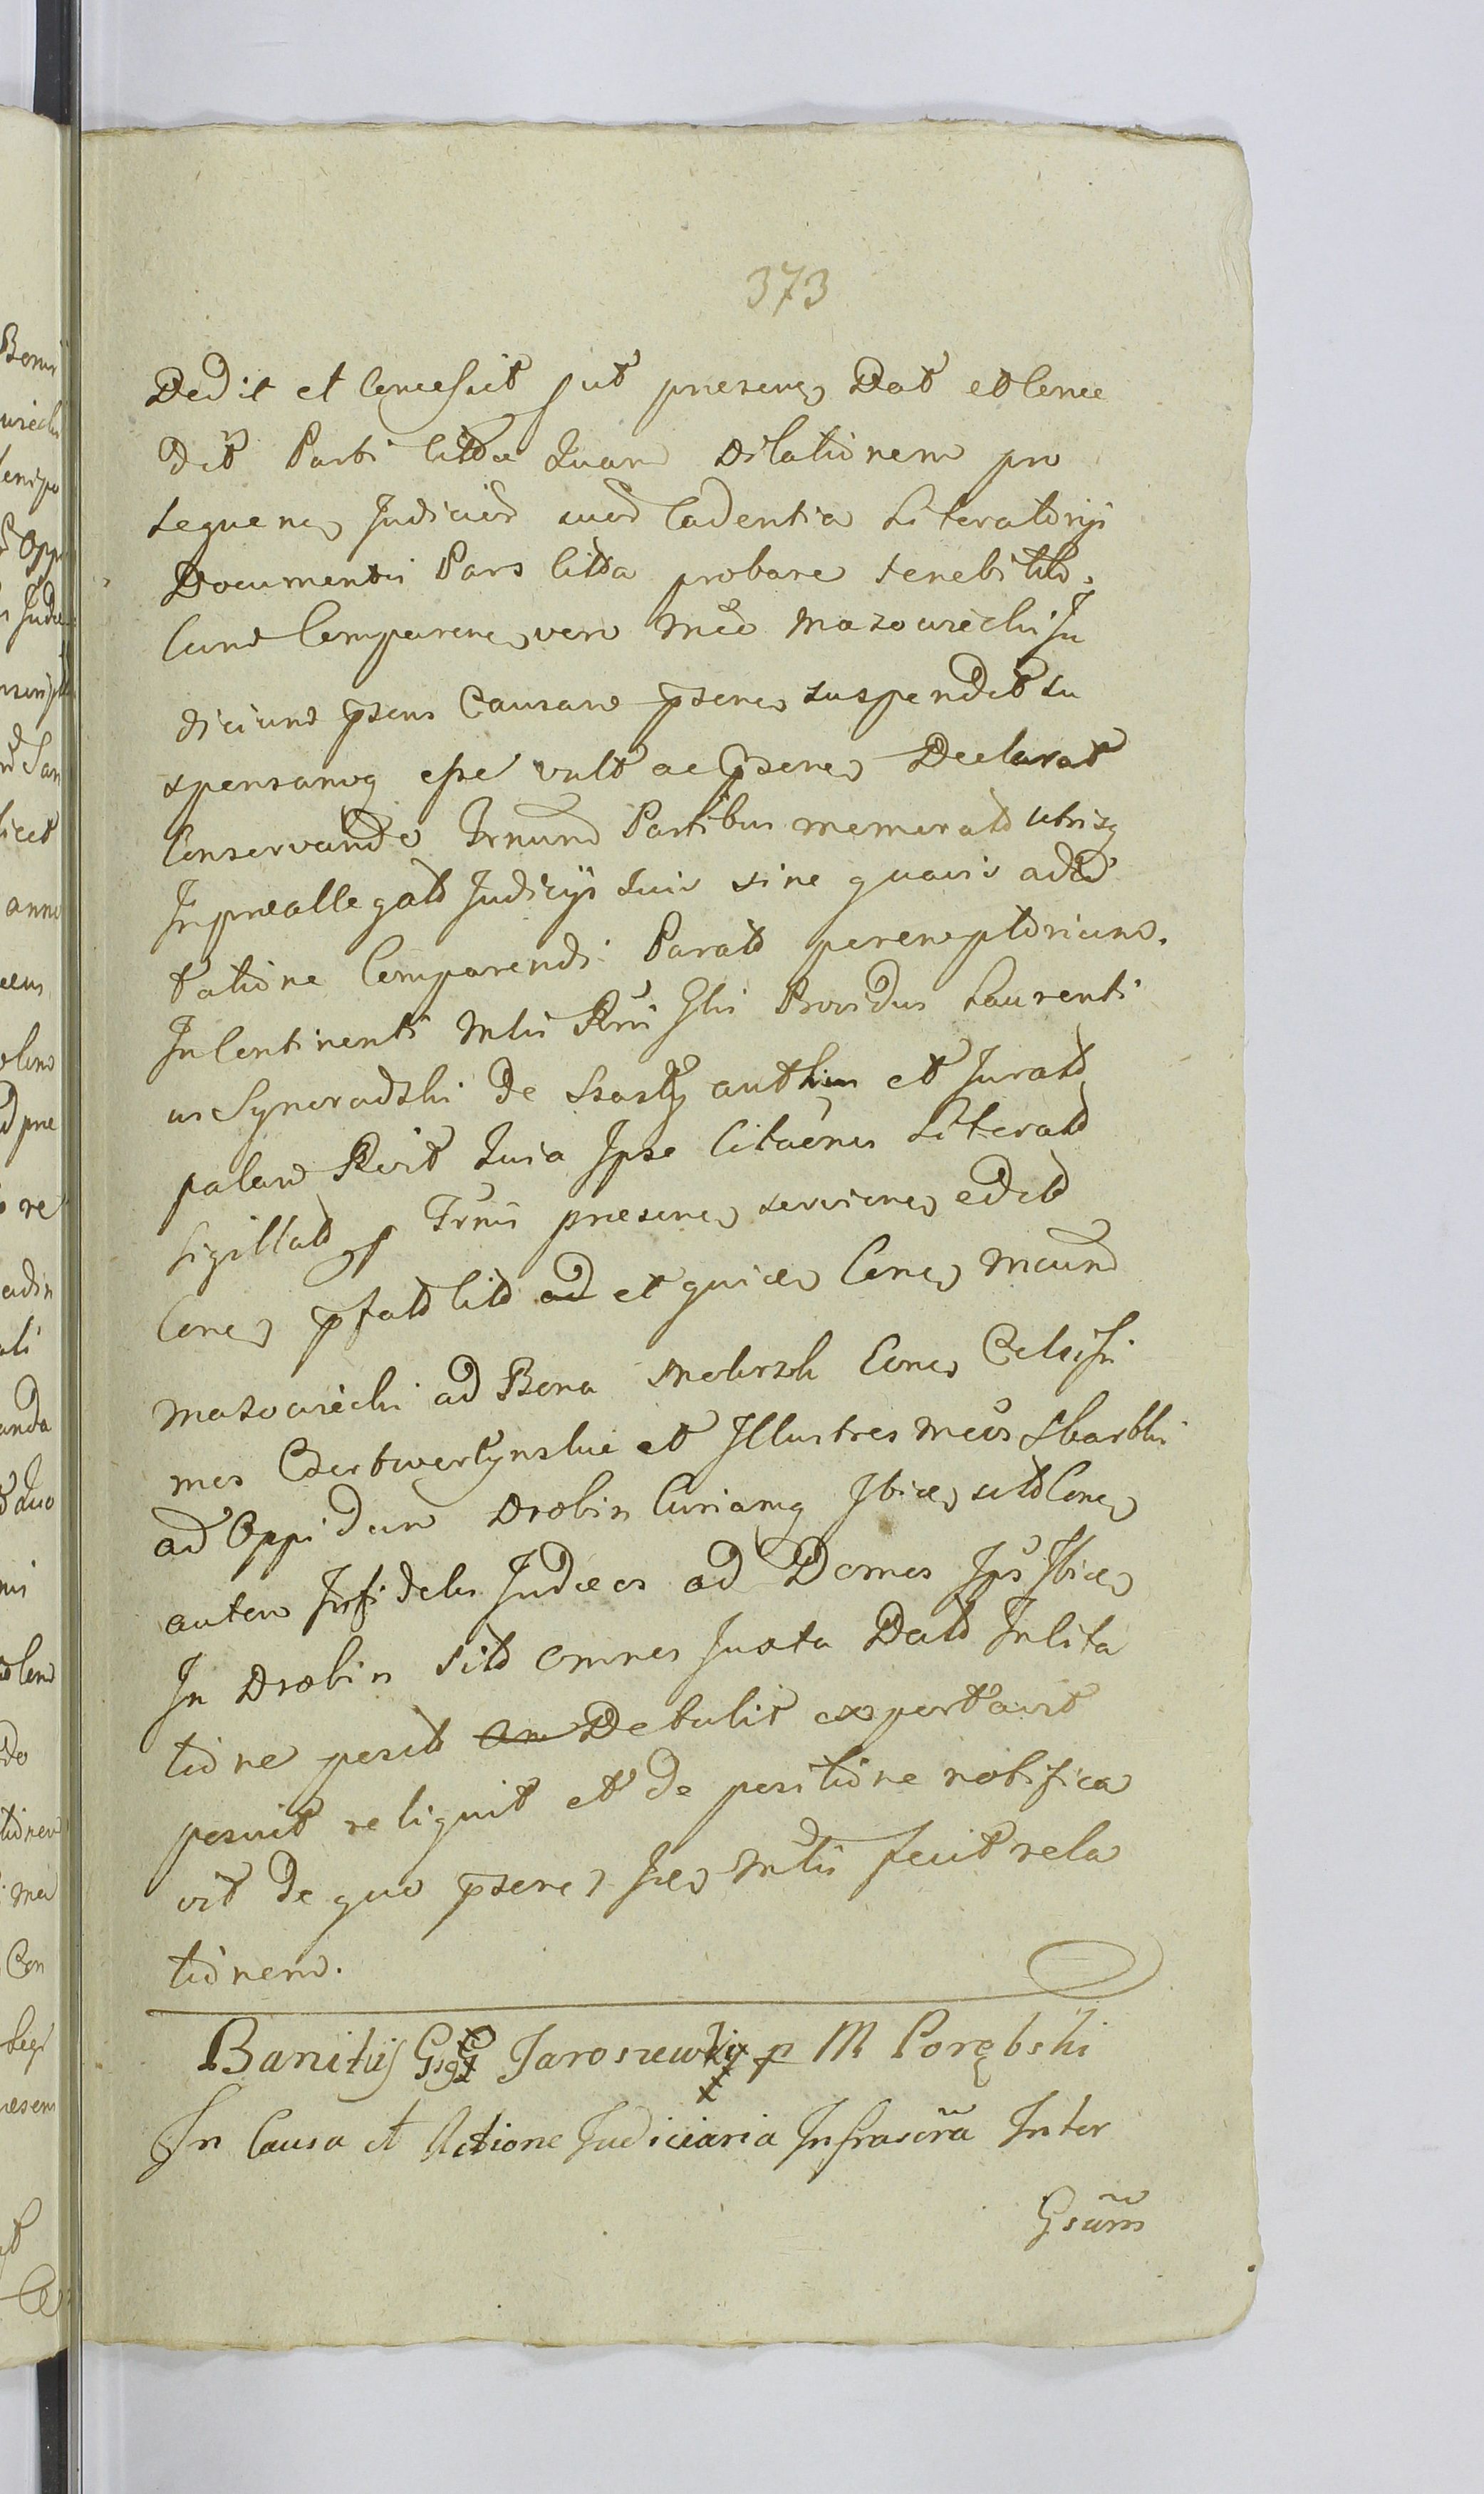 373
Dedit et Concessit put presen Dat et Conce
dit Parti Citatae Quam Dilationem pro
sequen Judicior cum Cadentia Literatorijs
Documentis Pars Citata probare tenebitur.
Cum Comparen vero Mco Mazowiecki Ju
dicium psens Causam psen suspendit su
spensamq esse vult ac psen Declarat
Conservando Trnum Partibus memorat utrisq
In praeallegat Judicijs suis sine quavis adci
tatione Comparendi Parat peremptorium.
In Continenti Mtis Rni Glis Providus Laurenti
us Synoradzki de authen et Jurat
palam Rvit Quia Ipse Citaones Literat
Sigillat p Trnis praesen servien edit
Conq pfat Cit et quidem Conq Mcum
Mazowiecki ad Bona Mokrsk Conq Celsissi
mos Czertwertynskie et Illustres Mcos Skarbki
ad Oppidum Drobin Curiamq Ibidem sit Conq
autem Infideles Judaeos ad Domos Ipso Ibidem
In Drobin Sit omnes Juxta Dat In Cita
tione posit Detulit exportavit
posuit reliquit et de positione notifica
vit de quo psen Idem Mtis fecit rela
tionem.
Banitijs Jaroszewskij p M Porębski
In Causa et Actione Judiciaria Infrascra Inter
Gsum